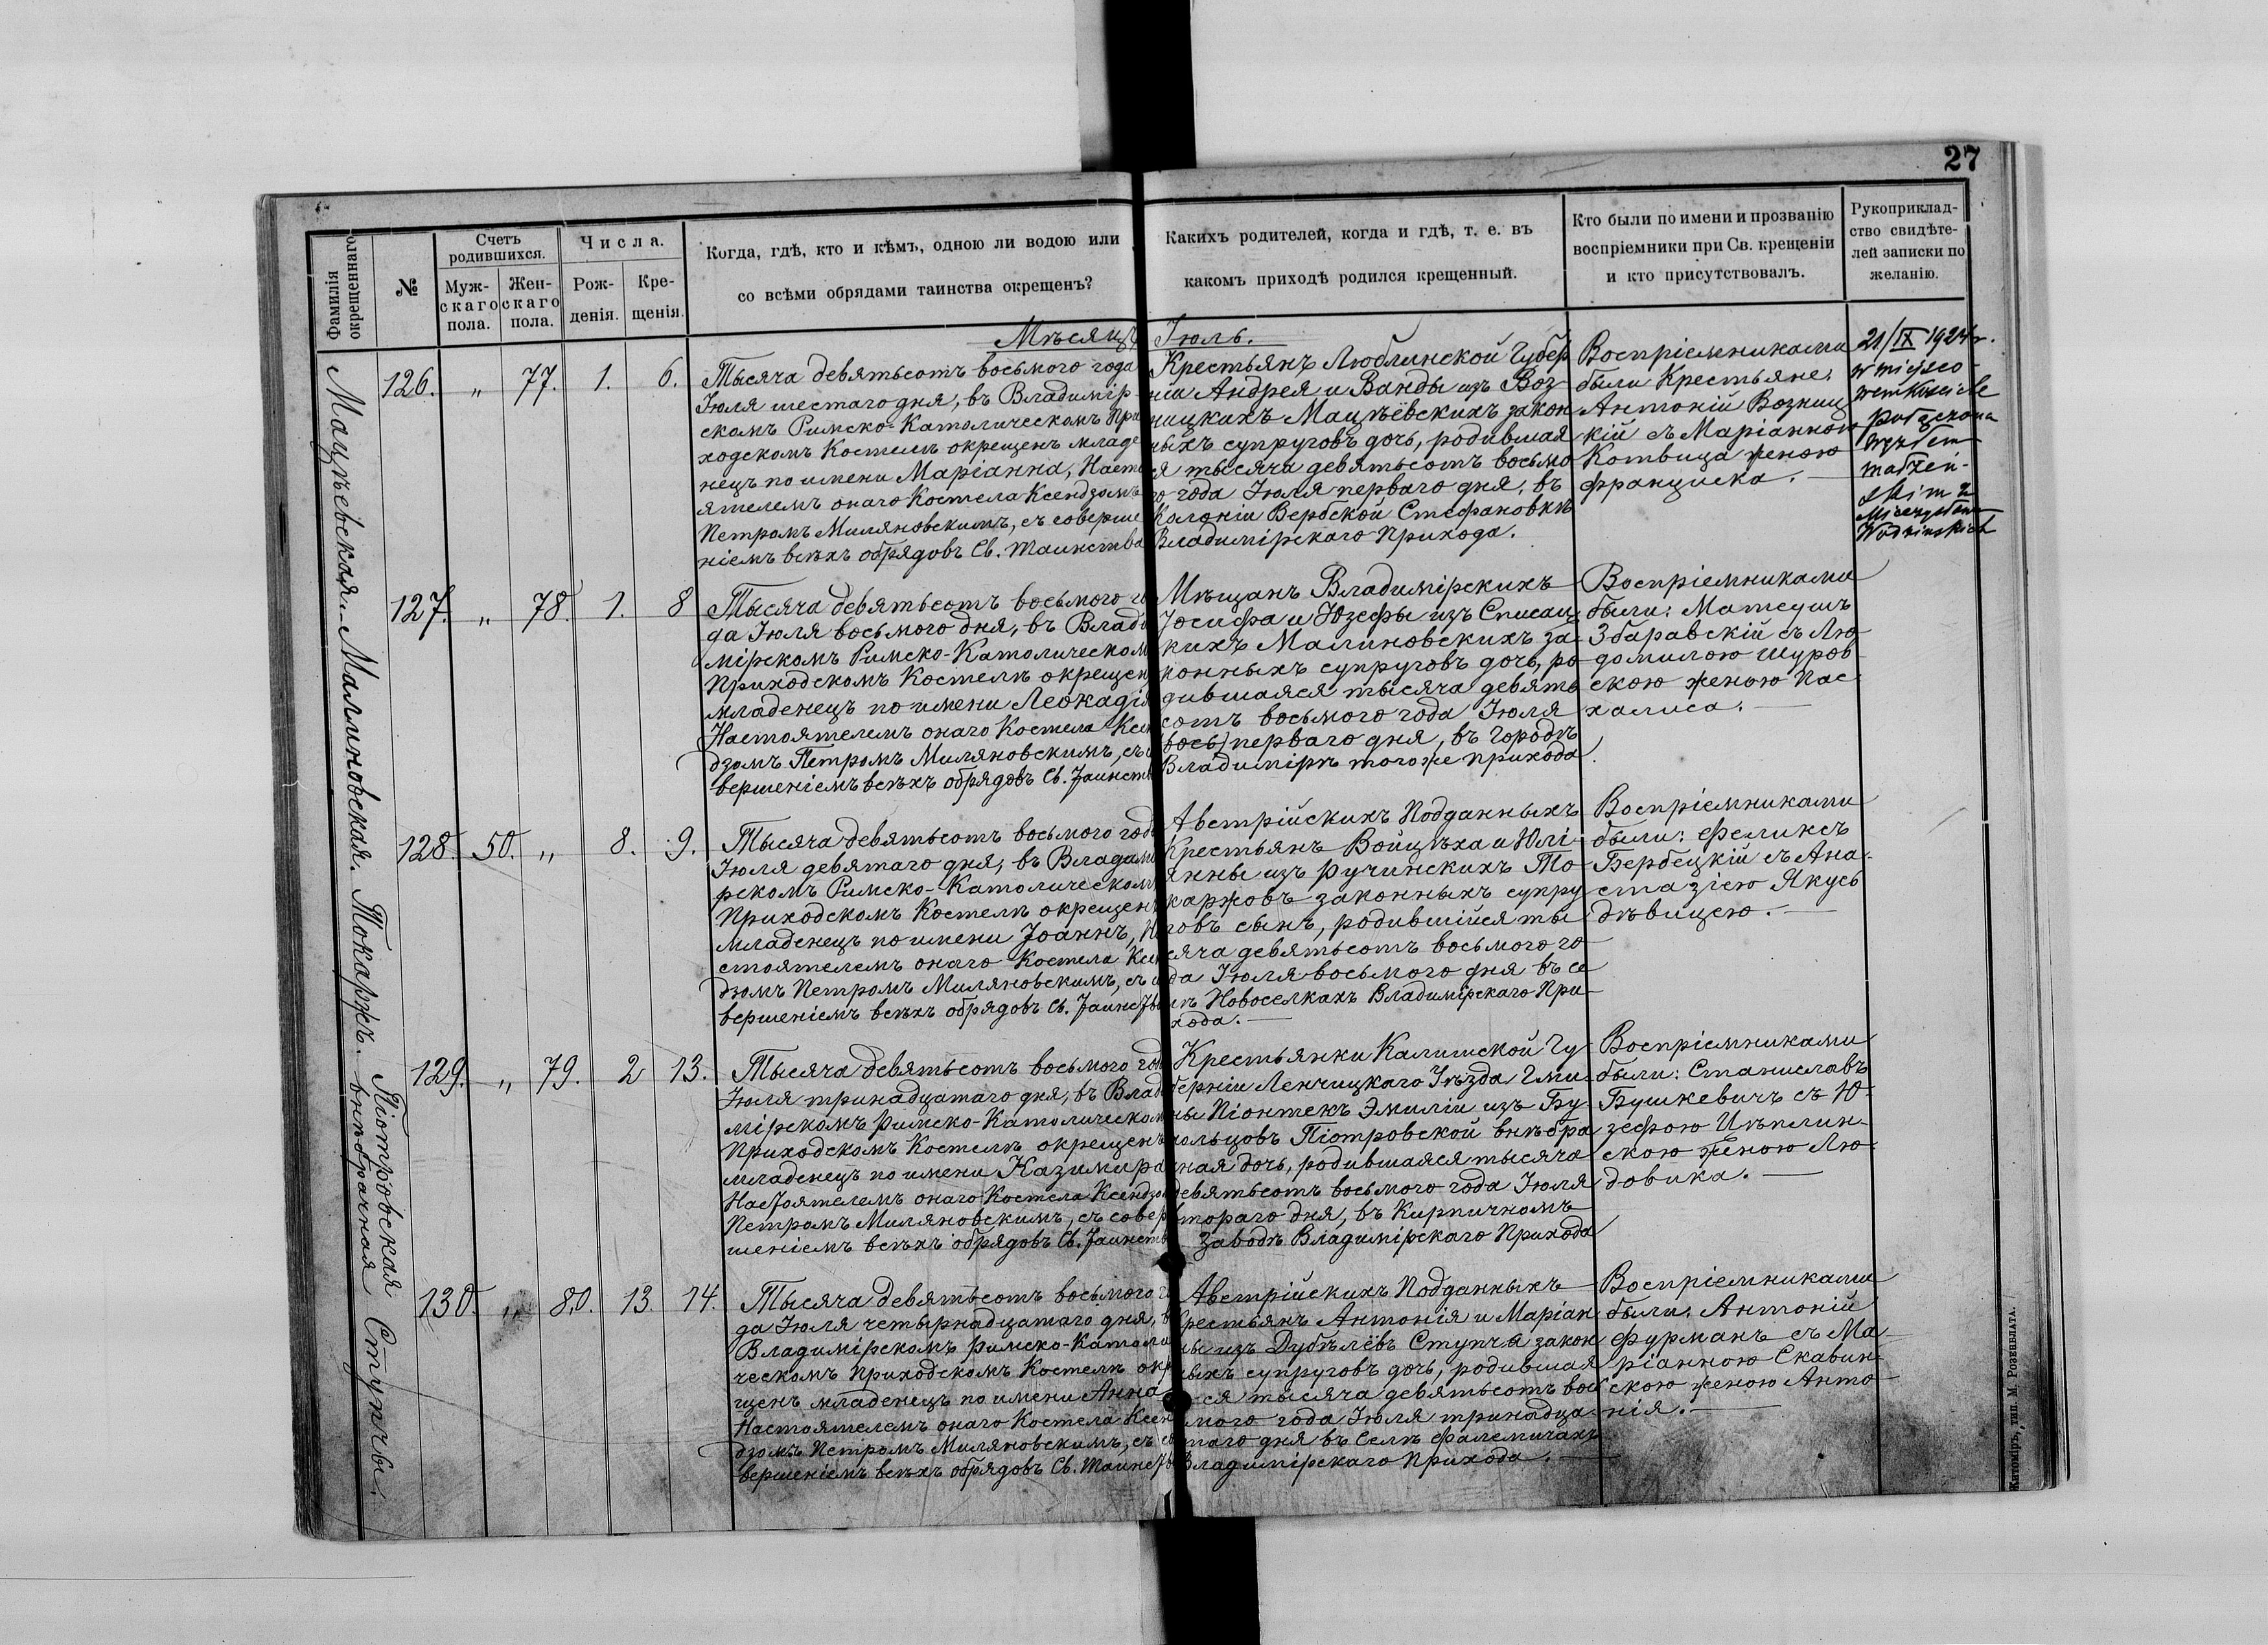 27
Фамилія окрещеннаго
№
Счетъ родившихся.
Муж-
скаго
пола.
Жен-
скаго
пола.
Числа.
Рож-
денія.
Кре-
щенія.
Когда, гдѣ, кто и кѣмъ, одною ли водою или
со всѣми обрядами таинства окрещенъ?
Какихъ родителей, когда и гдѣ, т. е. въ
какомъ приходѣ родился крещенный.
Кто были по имени и прозванію
воспріемники при Св. крещеніи
и кто присутствовалъ.
Рукоприклад-
ство свидѣте-
лей записки по
желанію.
Мѣсяцъ Іюль.
Мацѣёвская.
126. „ 77. 1. 6.
Тысяча девятьсотъ восьмого года
Іюля шестаго дня, въ Владимір-
скомъ Римско-Католическомъ При
ходскомъ Костелѣ окрещенъ младе
нецъ по имени Маріанна, Насто
ятелемъ онаго Костела Ксендзомъ
Петромъ Миляновскимъ, съ соверше
ніемъ всѣхъ обрядовъ Св. Таинства
Крестьянъ Люблинской Губер
ніи Андрея и Ванды изъ Воз-
ницкихъ Мацѣёвскихъ закон
ныхъ супруговъ дочь, родившая
ся тысяча девятьсотъ восьмо
го года Іюля перваго дня, въ
Колоніи Вербской Стефановкѣ
Владимірскаго Прихода.
Воспріемниками
были Крестьяне:
Антоній Возниц
кій съ Маріанною
Котвица женою
Франциска.
21/IX 1924 r.
w miejsco-
wem Kościele
połączona
węzłem
małżeń-
skim z
Mieczysławem
Wodzinskich
Малиновская.
127. „ 78. 1. 8
Тысяча девятьсотъ восьмого го
да Іюля восьмого дня, въ Влади
мірскомъ Римско-Католическомъ
Приходскомъ Костелѣ окрещенъ
младенецъ по имени Леокадія
Настоятелемъ онаго Костела Ксен
дзомъ Петромъ Миляновскимъ, съ со
вершеніемъ всѣхъ обрядовъ Св. Таинств
Мѣщанъ Владимірскихъ
Іосифа и Юзефы изъ Списац
кихъ Малиновскихъ за-
конныхъ супруговъ дочь, ро
дившаяся тысяча девять
сотъ восьмого года Іюля
(вось) перваго дня, въ Городѣ
Владимірѣ того же прихода.
Воспріемниками
были: Матеушъ
Збаравскій съ Лю
домилою Щуров
скою женою Пас-
халиса.
Токаржъ.
128. 50. „ 8. 9.
Тысяча девятьсотъ восьмого года
Іюля девятаго дня, въ Владими
рскомъ Римско-Католическомъ
Приходскомъ Костелѣ окрещенъ
младенецъ по имени Іоаннъ, На
стоятелемъ онаго Костела Ксен
дзомъ Петромъ Миляновскимъ, съ со
вершеніемъ всѣхъ обрядовъ Св. Таинства
Австрійскихъ Подданныхъ
Крестьянъ Войцѣха и Юлі-
янны изъ Ручинскихъ То-
каржовъ законныхъ супру
говъ сынъ, родившійся ты
сяча девятьсотъ восьмого го
да Іюля восьмого дня въ се
лѣ Новоселкахъ Владимірскаго При-
хода.
Воспріемниками
были: Феликсъ
Бербецкій съ Ана-
стазіею Якусь
дѣвицею.
Піотровская
внѣбрачная
129. „ 79. 2 13.
Тысяча девятьсотъ восьмого года
Іюля тринадцатаго дня, въ Влади
мірскомъ Римско-Католическомъ
Приходскомъ Костелѣ окрещенъ
младенецъ по имени Казимира
Настоятелемъ онаго Костела Ксендзом
Петромъ Миляновскимъ, съ совер
шеніемъ всѣхъ обрядовъ Св. Таинств
Крестьянки Калишской Гу
берніи Ленчицкаго Уѣзда Гми-
ны Піонтекъ Эмиліи изъ Бу-
кольцовъ Піотровской внѣбра
чная дочь, родившаяся тысяча
девятьсотъ восьмого года Іюля
второго дня, въ Кирпичномъ
Заводѣ Владимірскаго Прихода
Воспріемниками
были: Станиславъ
Бушкевичъ съ Ю-
зефою Цѣплин-
скою женою Лю-
довика.
Ступчы.
130. „ 80. 13 14.
Тысяча девятьсотъ восьмого го
да Іюля четырнадцатаго дня, въ
Владимірскомъ Римско-Католи
ческомъ Приходскомъ Костелѣ окре
щенъ младенецъ по имени Анна
Настоятелемъ онаго Костела Ксен
дзомъ Петромъ Миляновскимъ, съ со
вершеніемъ всѣхъ обрядовъ Св. Таинства
Австрійскихъ Подданныхъ
Крестьянъ Антонія и Маріан
ны изъ Дубѣлёвъ Ступча закон
ныхъ супруговъ дочь, родившая
ся тысяча девятьсотъ вось
мого года Іюля тринадца-
таго дня въ Селѣ Фалемичахъ
Владимірскаго Прихода.
Воспріемниками
были: Антоній
Фурманъ съ Ма-
ріанною Скавин-
скою женою Анто
нія.
Житоміръ, тип. М. Розенблата.